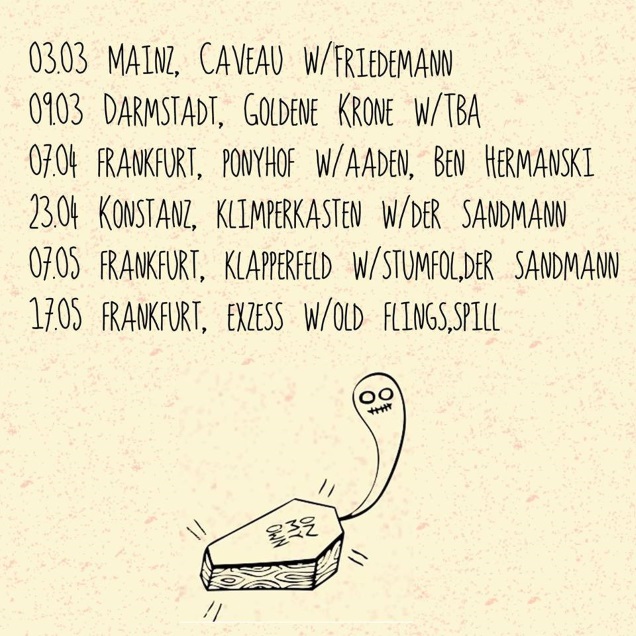 03.03 MAINZ, CAVEAU W/FRIEDEMANN
09.03 DARMSTADT, GOLDENE KRONE W/TBA
07.04 FRANKFURT, PONYHOF W/AADEN, BEN HERMANSKI
23.04 KONSTANZ, KLIMPERKASTEN W/DER SANDMANN
07.05 FRANKFURT, KLAPPERFELD W/STUMFOL,DER SANDMANN
17.05 FRANKFURT, EXZESS W/OLD FLINGS,SPILL
ON
MY
OWN